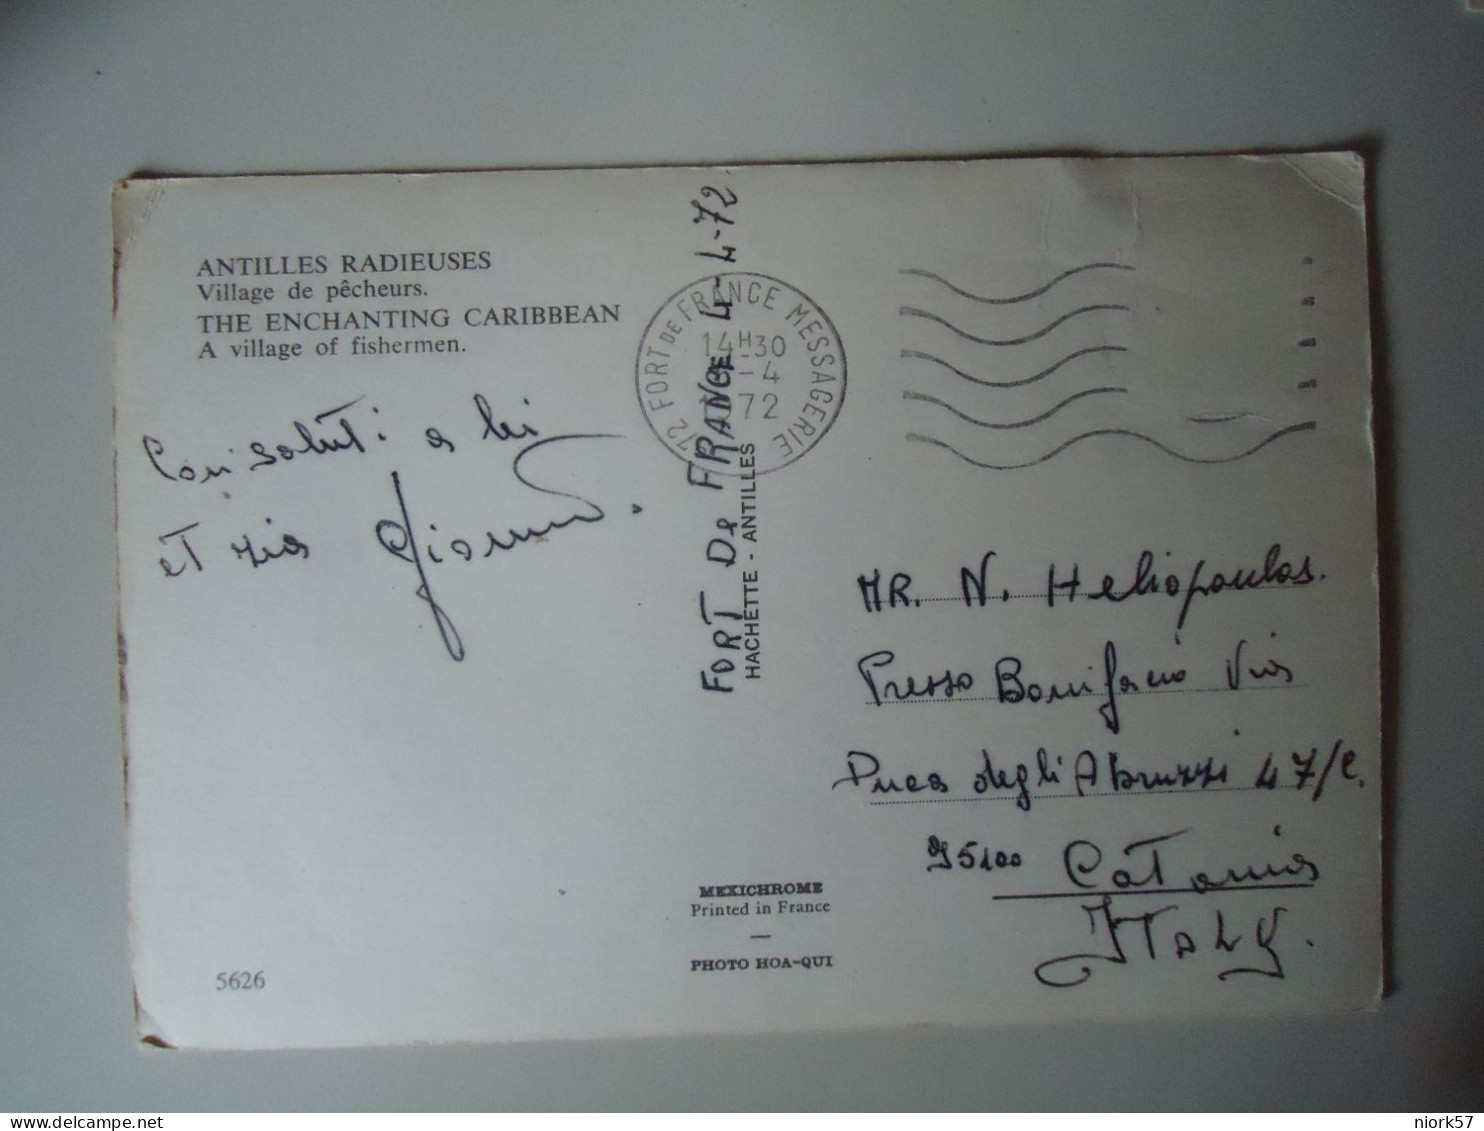 ANTILLES RADIEUSES
Village de pêcheurs.
THE ENCHANTING CARIBBEAN
A village of fishermen.
Cari saluti a lei
et zia
FORT De FRANCE 4-4-72
972 FORT DE FRANCE MESSAGERIE
14H30
-4
72
HACHETTE - ANTILLES
MR. N. Heliopoulos.
Presso Bonifacio Via
Duca degli Abruzzi 47/c.
95100 Catania
ITaLy.
MEXICHROME
Printed in France
PHOTO HOA-QUI
5626
niork57